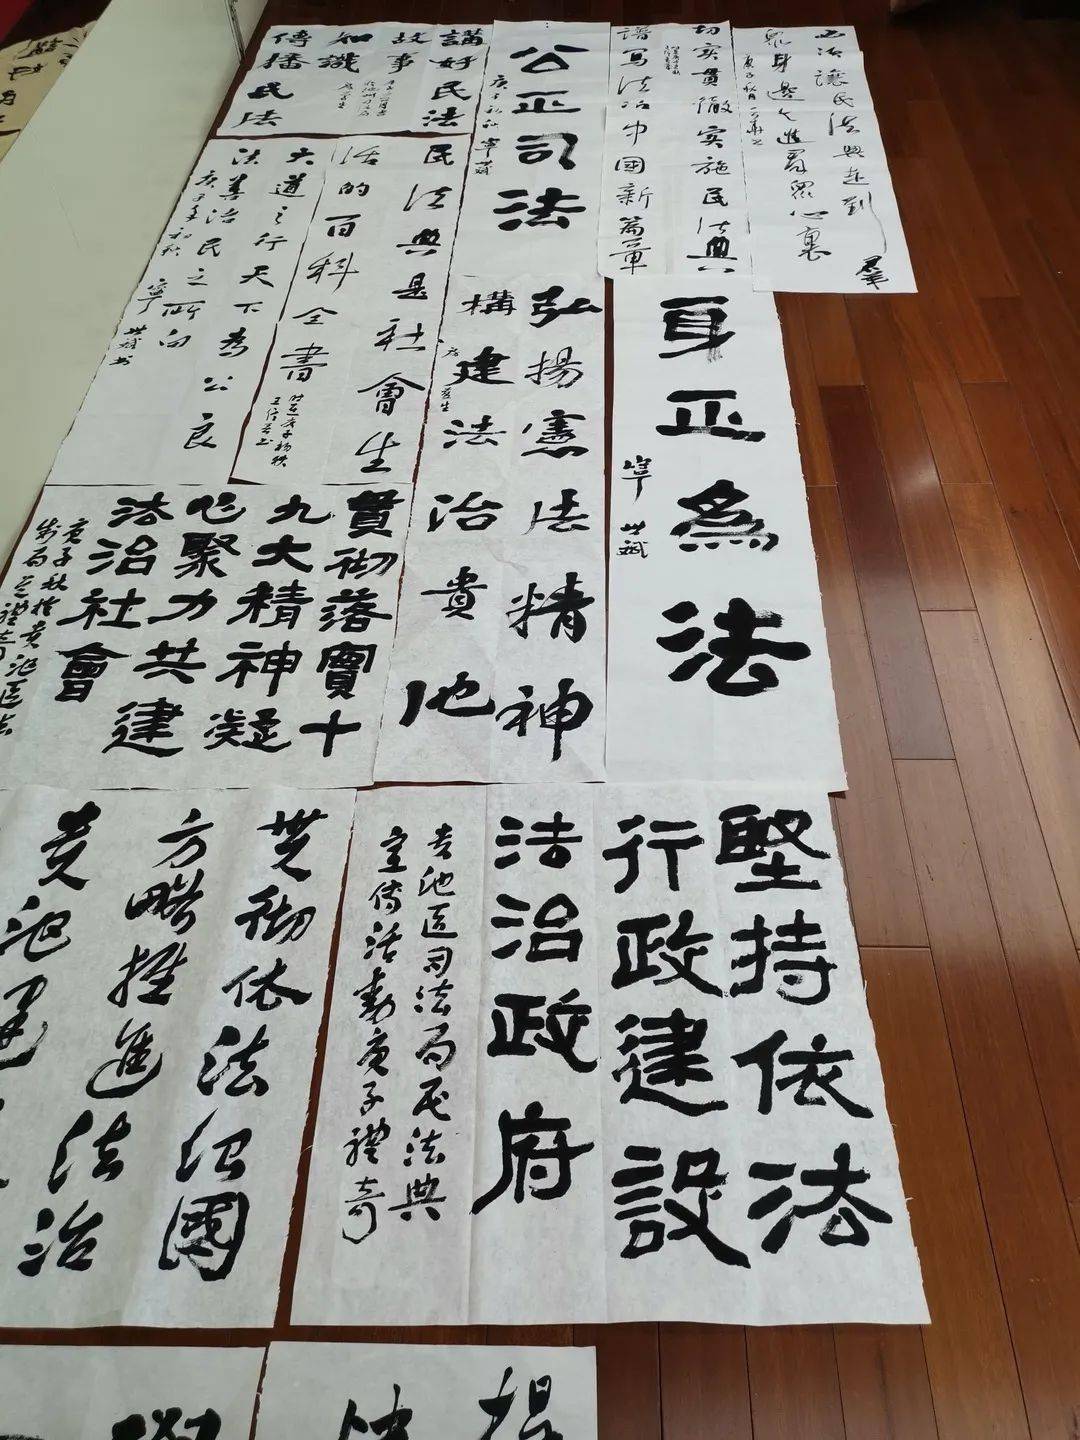 講好民法
故事
知識
傳播民法
公正司法
庚子初秋 寧斌
切实貫徹实施民法典
譜写法治中國新篇章
民法典走到
羣眾身邊走進羣眾心裏
民法典是社會生
活的百科全書
大道之行天下為公良
法善治民之所向
庚子年初秋
寧 斌书
弘揚憲法精神
構建法治貴池
身正為法
寧 斌
貫彻落實十
九大精神凝
心聚力共建
法治社會
堅持依法
行政建設
法治政府
贵池区司法局民法典
宣传活動庚子禮奇
贯彻依法治國
方略推進法治
贵池建